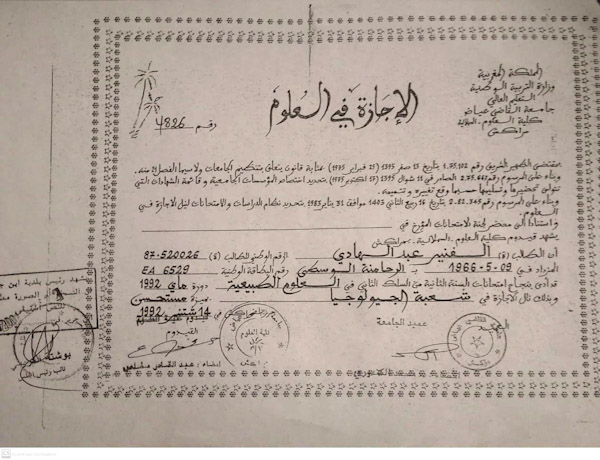 المملكة المغربية
وزارة التربية الوطنية
التعليم العالي
جامعة القاضي عياض
كلية العلوم - السملالية
مراكش
الإجازة في العلوم
رقم 4826
بمقتضى الظهير الشريف رقم 1.75.102 بتاريخ 13 صفر 1395 (25 فبراير 1975) بمثابة قانون يتعلق بتنظيم الجامعات ولا سيما الفصل منه.
وبناء على المرسوم رقم 2.75.667 الصادر في 11 شوال 1395 (17 أكتوبر 1975) بتحديد اختصاص المؤسسات الجامعية وقائمة الشهادات التي
تتولى تحضيرها وتسليمها حسبما وقع تغييره وتتميمه.
وبناء على المرسوم رقم 2.82.345 بتاريخ 16 ربيع الثاني 1403 موافق 31 يناير 1983 بتحديد نظام الدراسات والامتحانات لنيل الإجازة في
العلوم.
واستنادا إلى محضر لجنة الامتحانات المؤرخ في
يشهد قيدوم كلية العلوم السملالية - بمراكش
أن الطالب (ة) الفنير عبد الهادي الرقم الوطني للطالب (ة) 87-520026
المزداد في 09-5-1966 بـ الرحامنة الوسطى رقم البطاقة الوطنية EA 6529
قد أدى بنجاح امتحانات السنة الثانية من السلك الثاني في العلوم الطبيعية دورة ماي 1992
وبذلك نال الإجازة في شعبة الجيولوجيا بميزة مستحسن
14 شتنبر 1992
عميد الجامعة
القيدوم
كلية العلوم
يشهد رئيس بلدية ابن
بوشتة
نائب رئيس